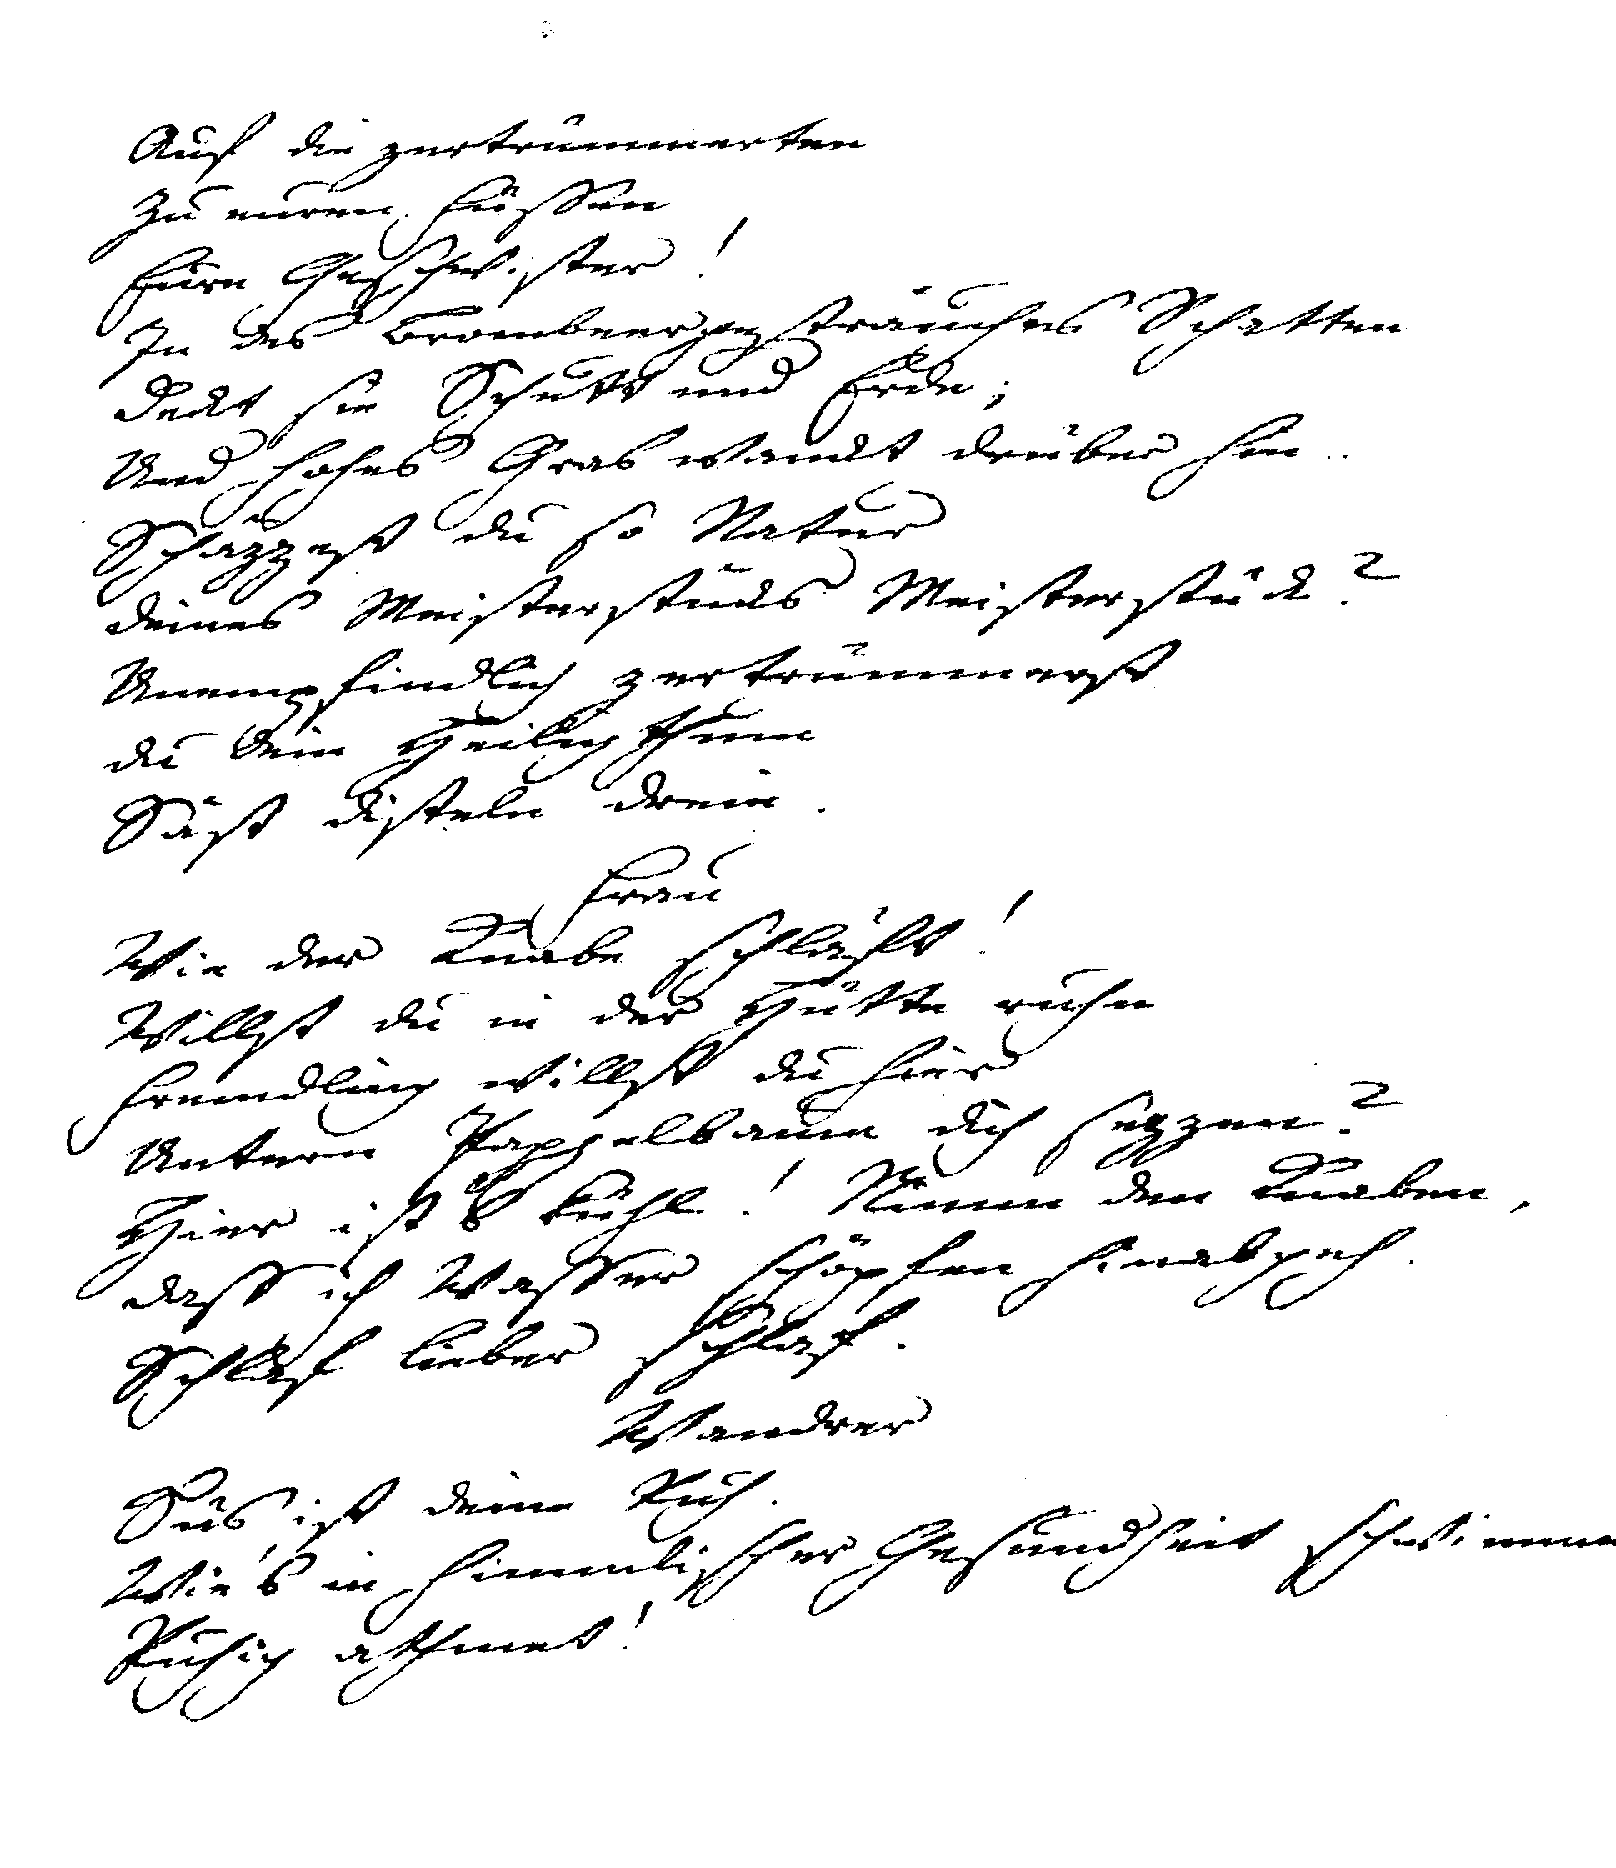 Auf die zertrümmerten
Zu euren Füssen
Eure Geschwister!
In des Brombeergesträuches Schatten
Deckt sie Schutt und Erde;
Und hohes Gras wanckt drüber hin..
Schäzzest du so Natur
Deines Meisterstücks Meisterstück?
Unempfindlich zertrümmerst
du dein Heiligthum
Säst Disteln drein.
Frau
Wie der Knabe schläft!
Willst du in der Hütte ruhn
Fremdling willst du hier
Untern Pappelbaum dich sezzen?
Hier ist's kühl! Nimm den Knaben,
dass ich Wasser schöpfen hinabgeh.
Schlaf lieber schlaf.
Wandrer
Süs ist deine Ruh.
Wie's in himmlischer Gesundheit schwimme
Ruhig athmet!